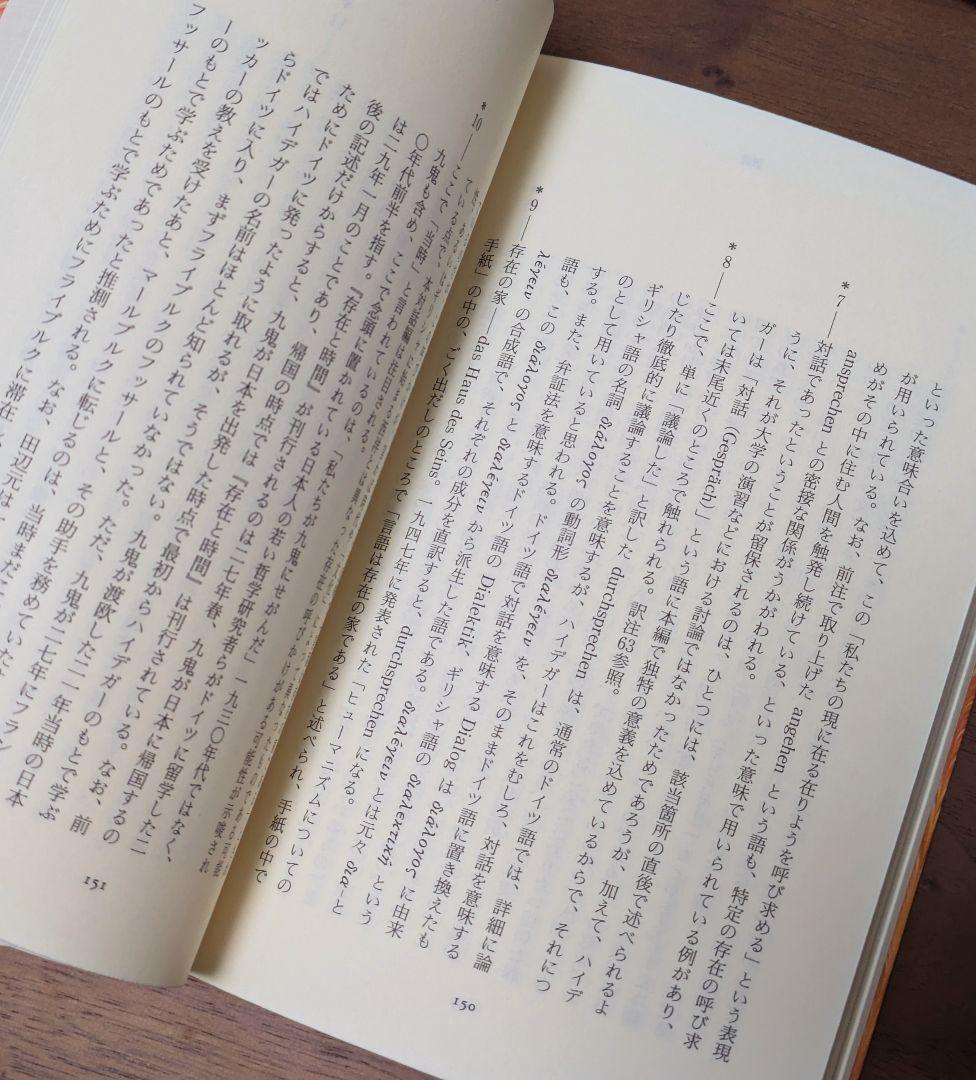 といった意味合いを込めて、この「私たちの現に在る在りようを呼び求める」という表現
が用いられている。なお、前注で取り上げた angehen という語も、特定の存在の呼び求
めがその中に住む人間を触発し続けている、といった意味で用いられている例があり、
ansprechen との密接な関係がうかがわれる。
*7——対話であったということが留保されるのは、ひとつには、該当箇所の直後で述べられるよ
うに、それが大学の演習などにおける討論ではなかったためであろうが、加えて、ハイデ
ガーは「対話（Gespräch）」という語に本編で独特の意義を込めているからで、それにつ
いては末尾近くのところで触れられる。訳注63参照。
*8——ここで、単に「議論した」と訳した durchsprechen は、通常のドイツ語では、詳細に論
じたり徹底的に議論することを意味するが、ハイデガーはこれをむしろ、対話を意味する
ギリシャ語の名詞 διάλογος の動詞形 διαλέγειν を、そのままドイツ語に置き換えたも
のとして用いていると思われる。ドイツ語で対話を意味する Dialog は διάλογος に由来
する。また、弁証法を意味するドイツ語の Dialektik、ギリシャ語の διαλεκτική という
語も、この διάλογος と διαλέγειν から派生した語である。διαλέγειν とは元々 διὰ と
λέγειν の合成語で、それぞれの成分を直訳すると、durchsprechen になる。
*9——存在の家——das Haus des Seins。一九四七年に発表された「ヒューマニズムについての
手紙」の中の、ごく出だしのところで「言語は存在の家である」と述べられ、手紙の中で
150
*10——ここで「当時」と言われているのは、「私たちが九鬼にせがんだ」一九三〇年代ではなく、
九鬼も含め、ここで念頭に置かれている日本人の若い哲学研究者らがドイツに留学した二
〇年代前半を指す。『存在と時間』が刊行されるのは二七年春、九鬼が日本に帰国するの
は二九年一月のことであり、帰国の時点ではハイデガーの
後の記述だけからすると、九鬼が日本を出発した時点で最初からハイデガーのもとで学ぶ
ためにドイツに発ったように取れるが、そうではない。
ではハイデガーの名前はほとんど知られていなかった。
らドイツに入り、まずフライブルクのフッサールと、その助手を務めていた
ッカーの教えを受けたあと、マールブルクに転じるのは、
ーのもとで学ぶためであったと推測される。なお、田辺元は
フッサールのもとで学ぶためにフライブルクに滞在
151